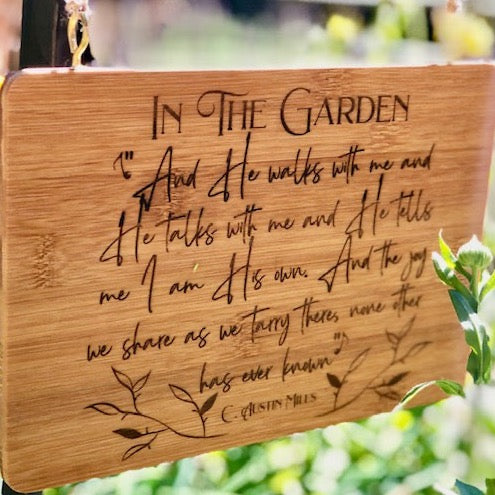 In The Garden
♪"And He walks with me and
He talks with me and He tells
me I am His own. And the joy
we share as we tarry there, none other
has ever known"♪
C. Austin Miles